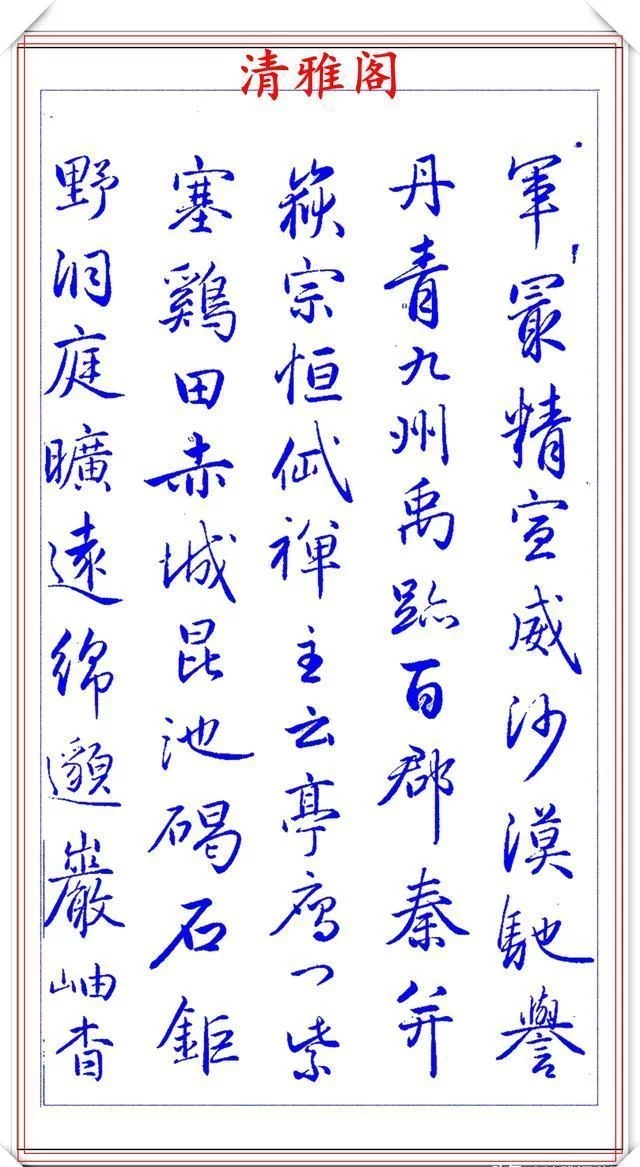 清雅阁
軍最精宣威沙漠馳譽
丹青九州禹跡百郡秦并
嶽宗恒岱禪主云亭鴈門紫
塞鷄田赤城昆池碣石鉅
野洞庭曠遠綿邈巖岫杳